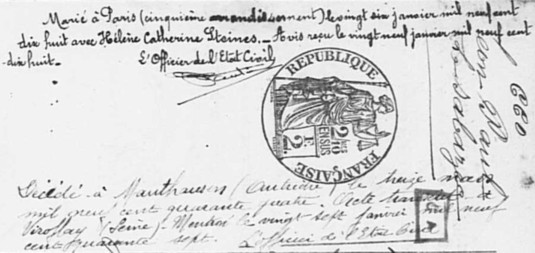 Marié à Paris (cinquième arrondissement) le vingt six janvier mil neuf cent
dix huit avec Hélène Catherine Steines._ Avis reçu le vingt neuf janvier mil neuf cent
dix huit._ L'Officier de l'Etat Civil
REPUBLIQUE FRANÇAISE
2 F
Décédé à Mauthausen (Autriche) le treize mars
mil neuf cent quarante quatre. Acte
Viroflay (Seine). Mention le vingt sept janvier mil neuf
cent quarante sept. L'officier de l'Etat Civil